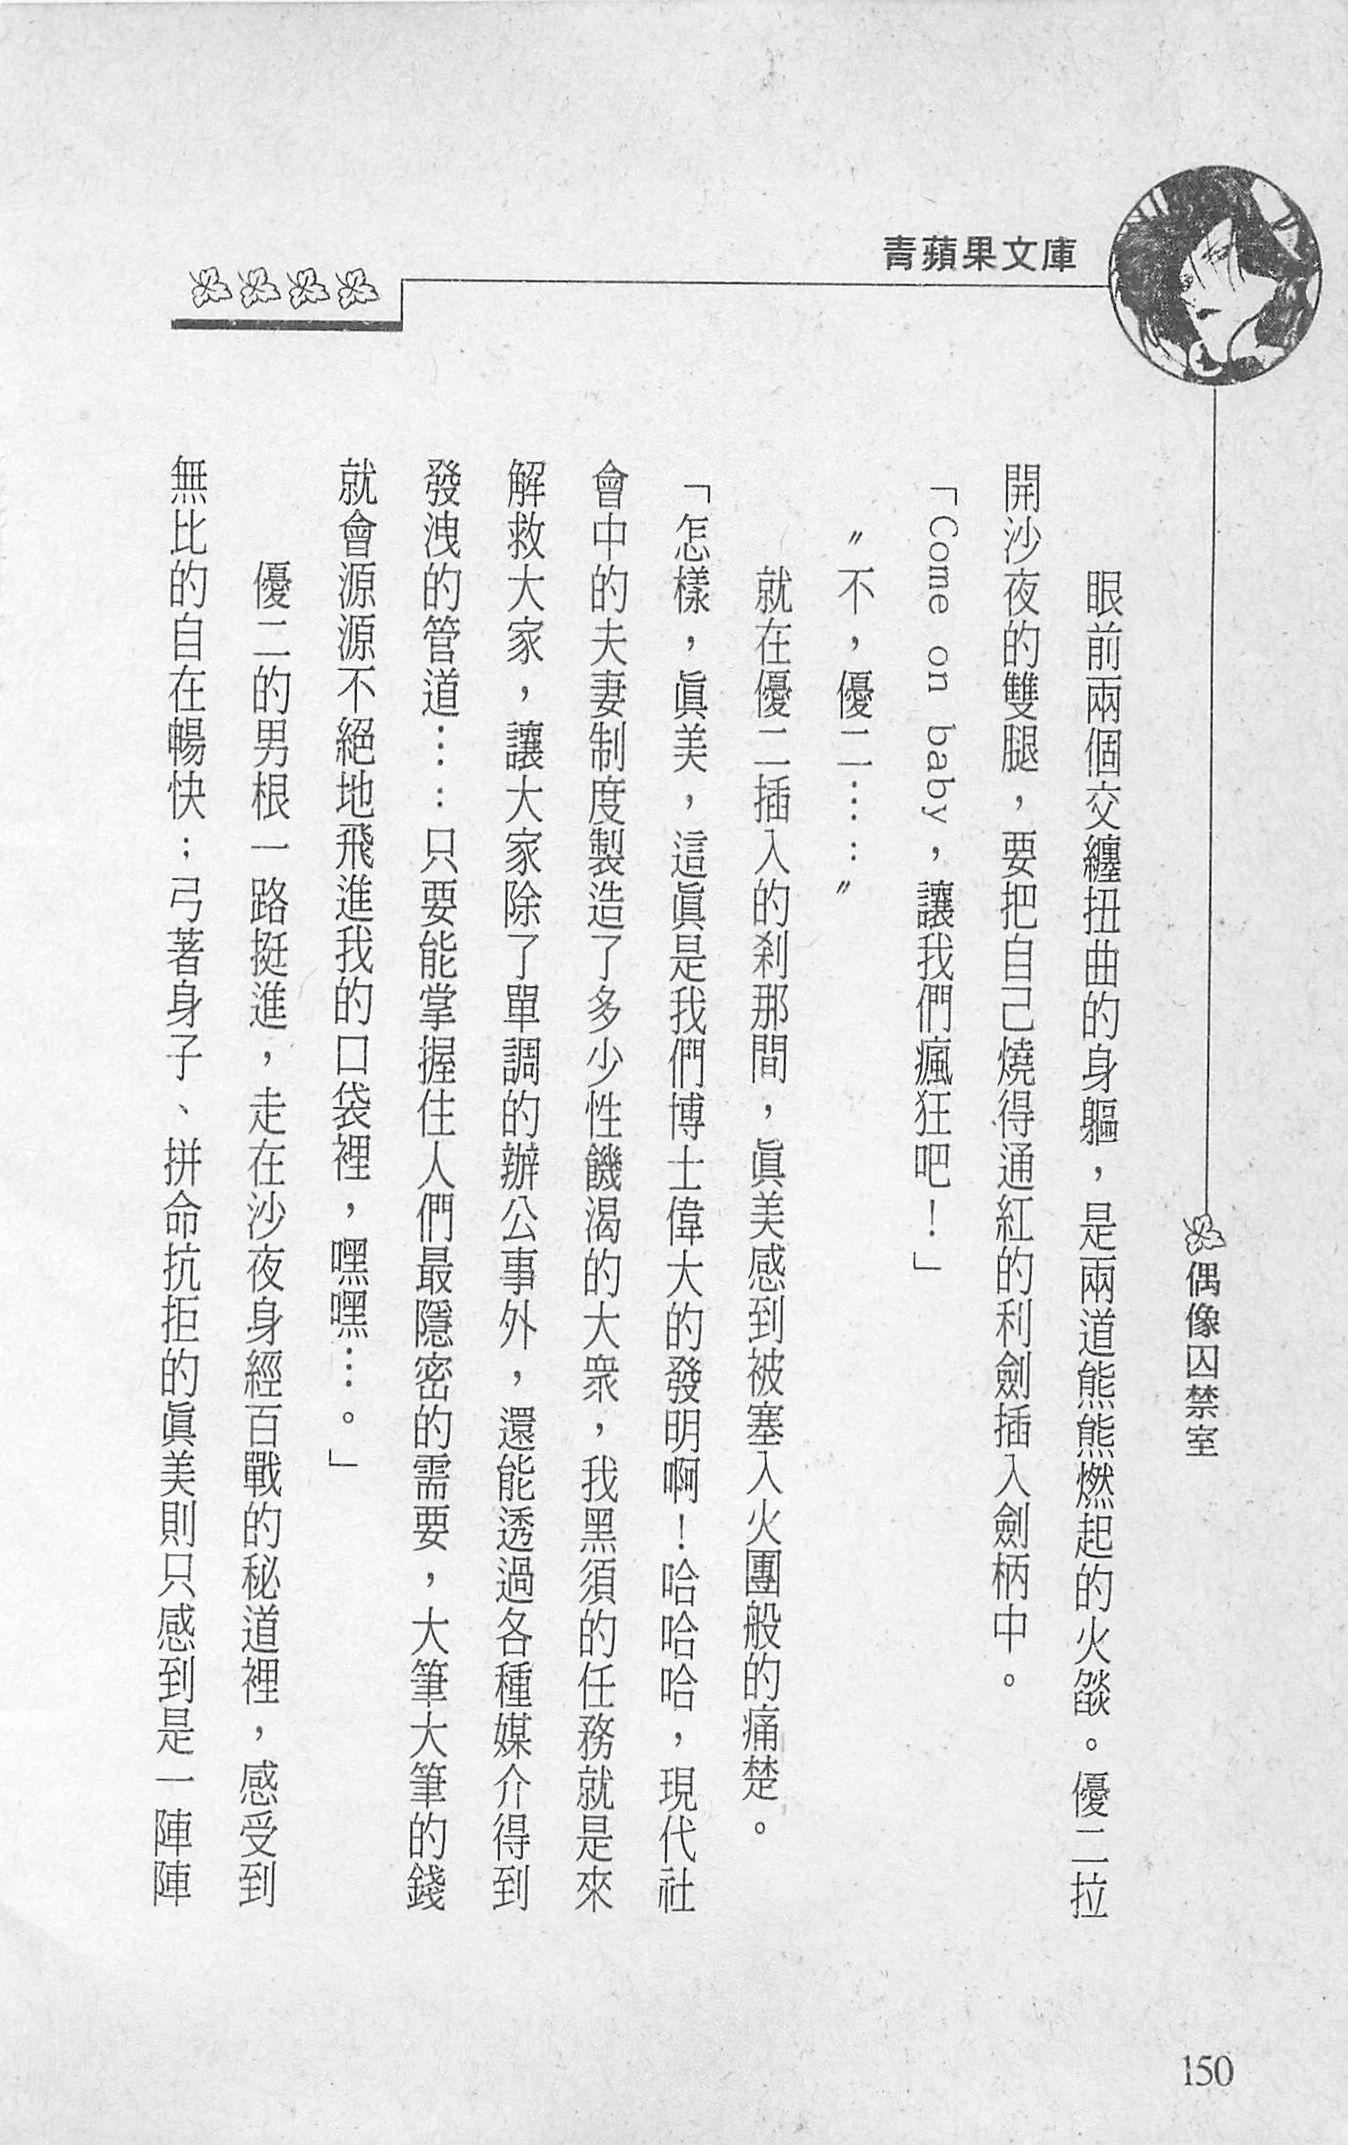 青蘋果文庫
偶像囚禁室
眼前兩個交纏扭曲的身軀，是兩道熊熊燃起的火燄。優二拉
開沙夜的雙腿，要把自己燒得通紅的利劍插入劍柄中。
「Come on baby，讓我們瘋狂吧！」
〝不，優二……〞
就在優二插入的剎那間，眞美感到被塞入火團般的痛楚。
「怎樣，眞美，這眞是我們博士偉大的發明啊！哈哈哈，現代社
會中的夫妻制度製造了多少性饑渴的大衆，我黑須的任務就是來
解救大家，讓大家除了單調的辦公事外，還能透過各種媒介得到
發洩的管道……只要能掌握住人們最隱密的需要，大筆大筆的錢
就會源源不絕地飛進我的口袋裡，嘿嘿…。」
優二的男根一路挺進，走在沙夜身經百戰的秘道裡，感受到
無比的自在暢快；弓著身子、拼命抗拒的眞美則只感到是一陣陣
150